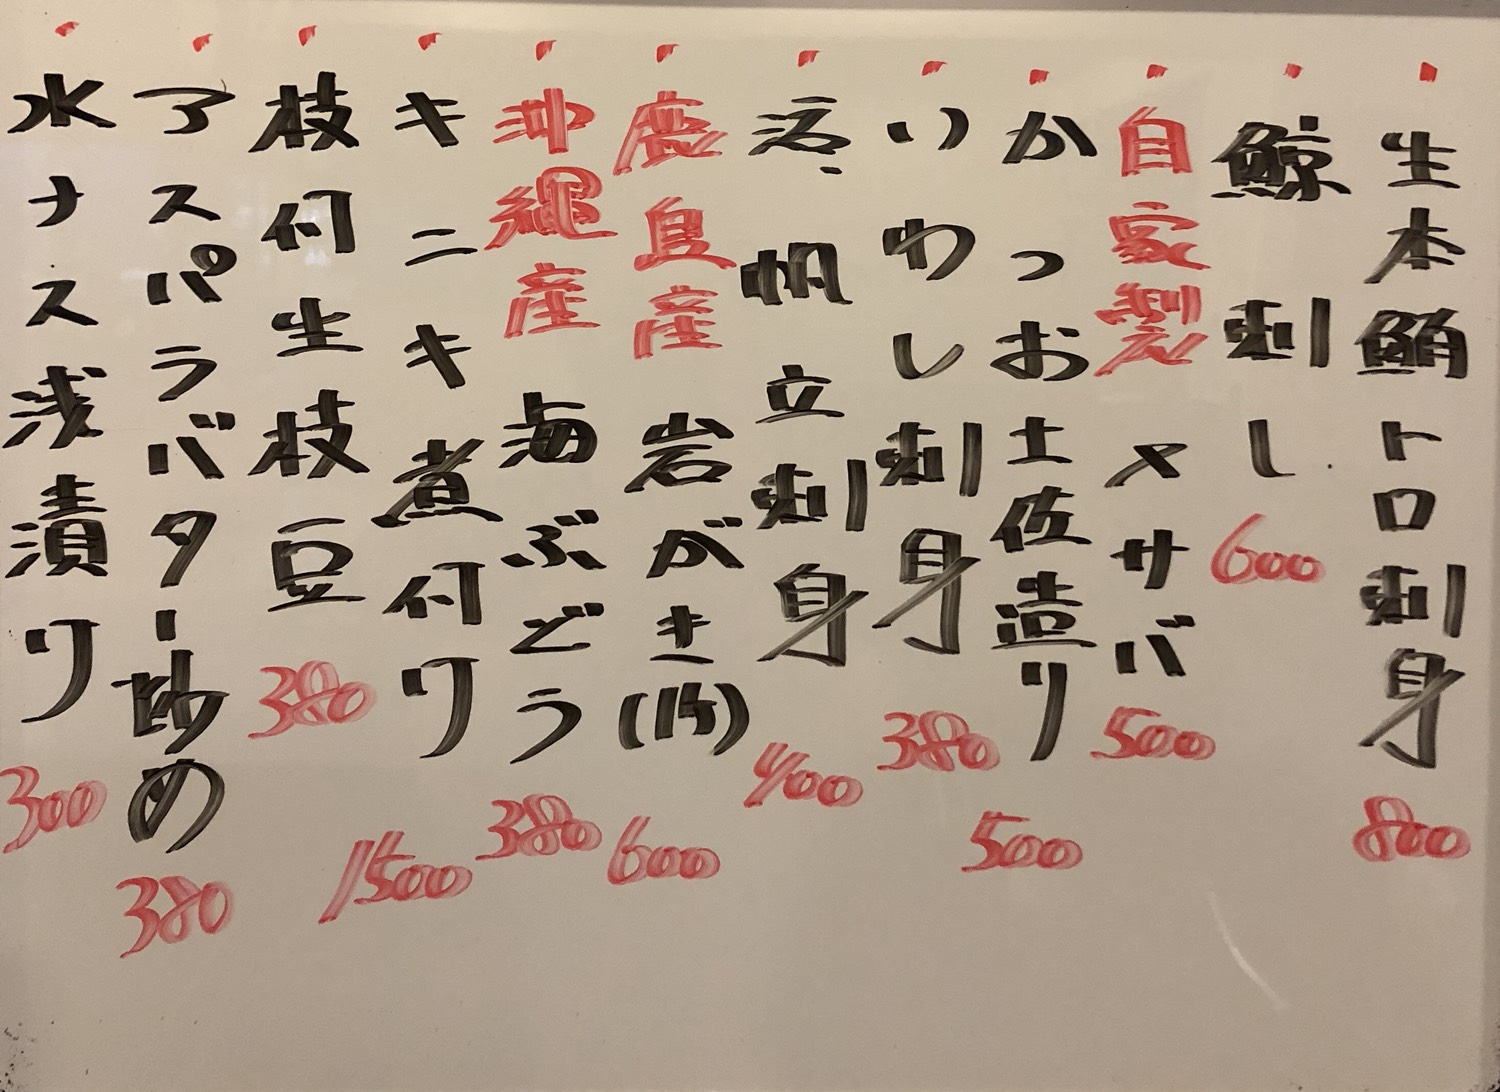 生本鮪トロ刺身 800
鯨刺し 600
自家製 〆サバ 500
かつお土佐造り 500
いわし刺身 380
活帆立刺身 400
鹿島産 岩がき(1ケ) 600
沖縄産 海ぶどう 380
キンキ煮付け 1500
枝付生枝豆 380
アスパラバター炒め 380
水ナス浅漬け 300